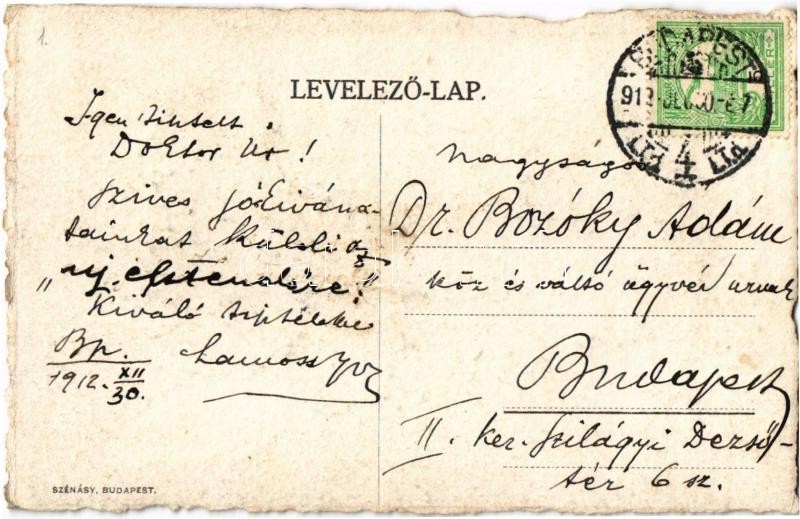 1.
LEVELEZŐ-LAP.
Igen tisztelt
Doktor Úr!
Szives jókivána-
tainkat küldi az
"új esztendőre!"
Kiváló tisztelettel
Bp.
1912. XII
30.
BUDAPEST
4
Nagyságos
Dr. Bozóky Adám
köz és váltó ügyvéd urnak
Budapest
II. ker. Szilágyi Dezső-
tér 6 sz.
SZÉNÁSY, BUDAPEST.